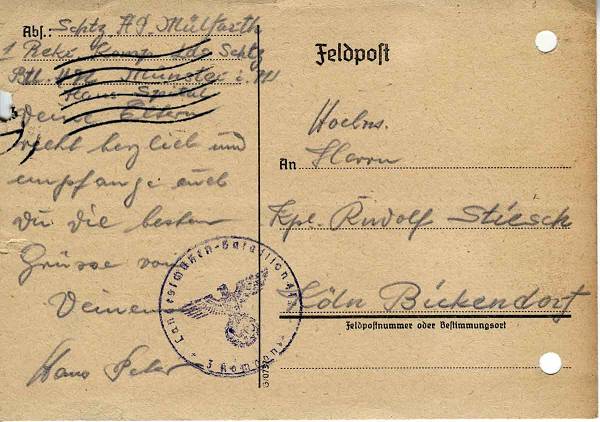 Abs.: Schtz H.P. Mülfarth
1 Rekr Komp Lds Schtz
Btl. Münster i. W
Haus Spital
Deine Eltern
recht herzlich und
empfange auch
Du die besten
Grüsse von
Deinem
Hans Peter
Feldpost
An
Herrn
Rudolf Stiesch
Köln Bickendorf
Feldpostnummer oder Bestimmungsort
Landesschützen-Bataillon
3 Komp